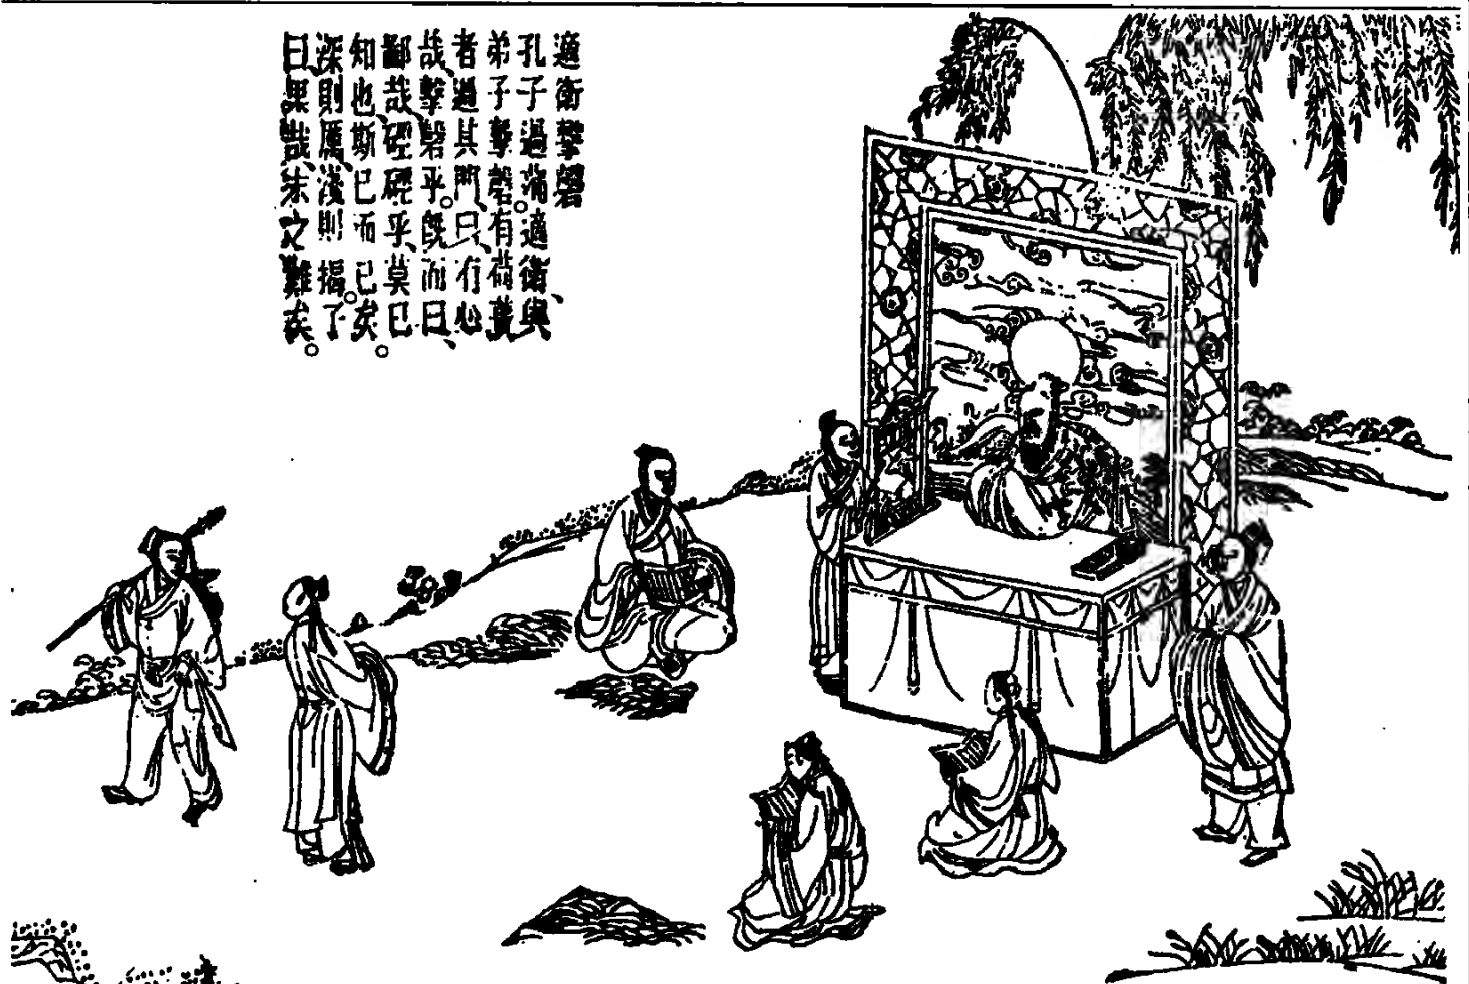 適衛擊磬
孔子過蒲適衛、與
弟子擊磬。有荷蕢
者過其門、曰、有心
哉、擊磬乎。既而曰、
鄙哉、硜硜乎、莫已
知也、斯已而已矣。
深則厲、淺則揭。子
曰、果哉、末之難矣。